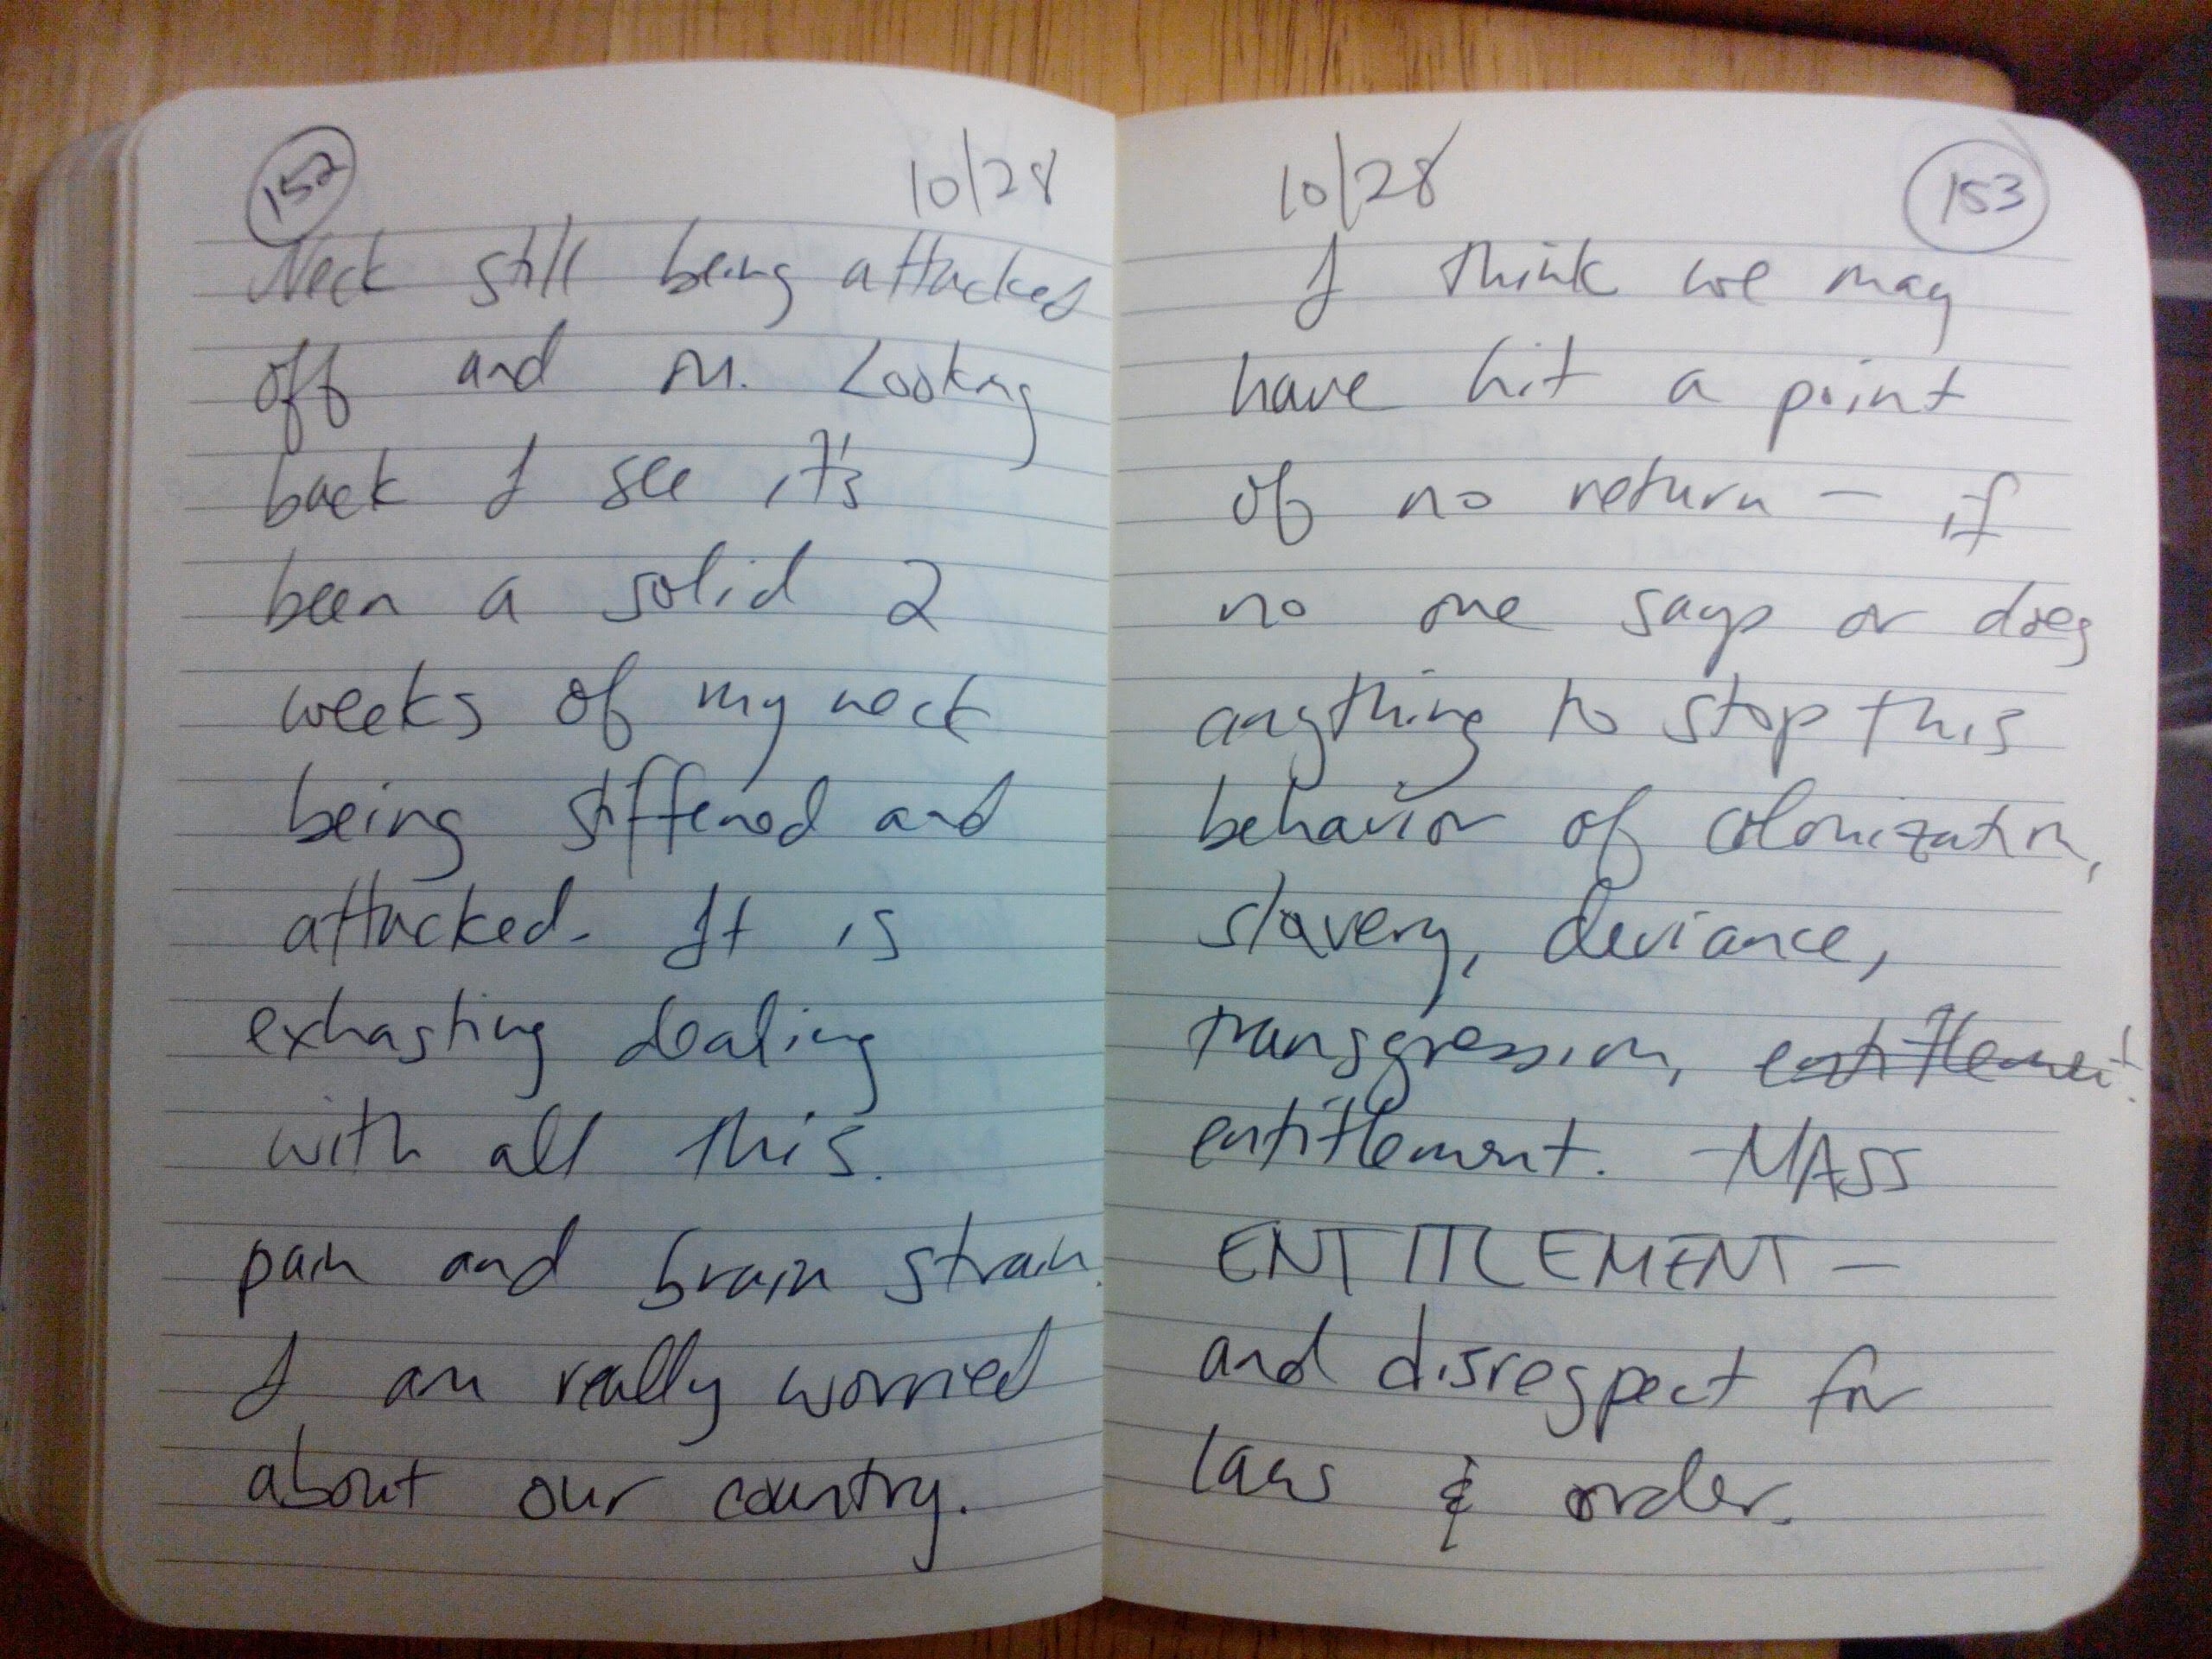 152
10/28
Neck still being attacked
off and on. Looking
back I see it's
been a solid 2
weeks of my neck
being stiffened and
attacked. It is
exhasting dealing
with all this.
pain and brain strain.
I am really worried
about our country.
10/28
153
I think we may
have hit a point
of no return – if
no one says or does
anything to stop this
behavior of colonization,
slavery, deviance,
transgression, entitlement
entitlement. –MASS
ENTITLEMENT –
and disrespect for
laws & order.